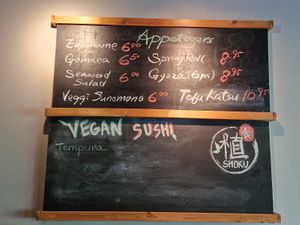 Appetizers
Edamame 6.00
Gomaea 6.50
Seaweed Salad 6.00
Veggi Sunomono 6.00
Spring Roll 8.95
Gyoza (6pcs) 8.95
Tofu Katsu 10.95
VEGAN SUSHI
Tempura
植
食
SHOKU